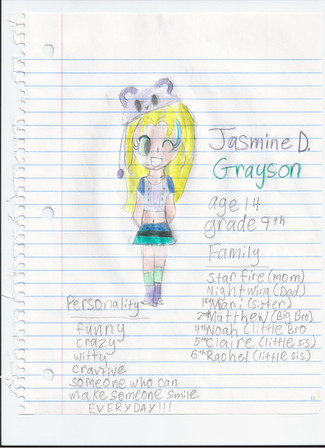 Jasmine D.
Grayson
age 14
grade 9th
Family
starfire (mom)
Nightwing (Dad)
1st Mani (sister)
2nd Matthew (Big Bro)
4th Noah (little Bro
5th Claire (little sis)
6th Rachel (little sis)
Personality
funny
crazy
witty
cravtive
someone who can
make someone smile
EVERYDAY!!!